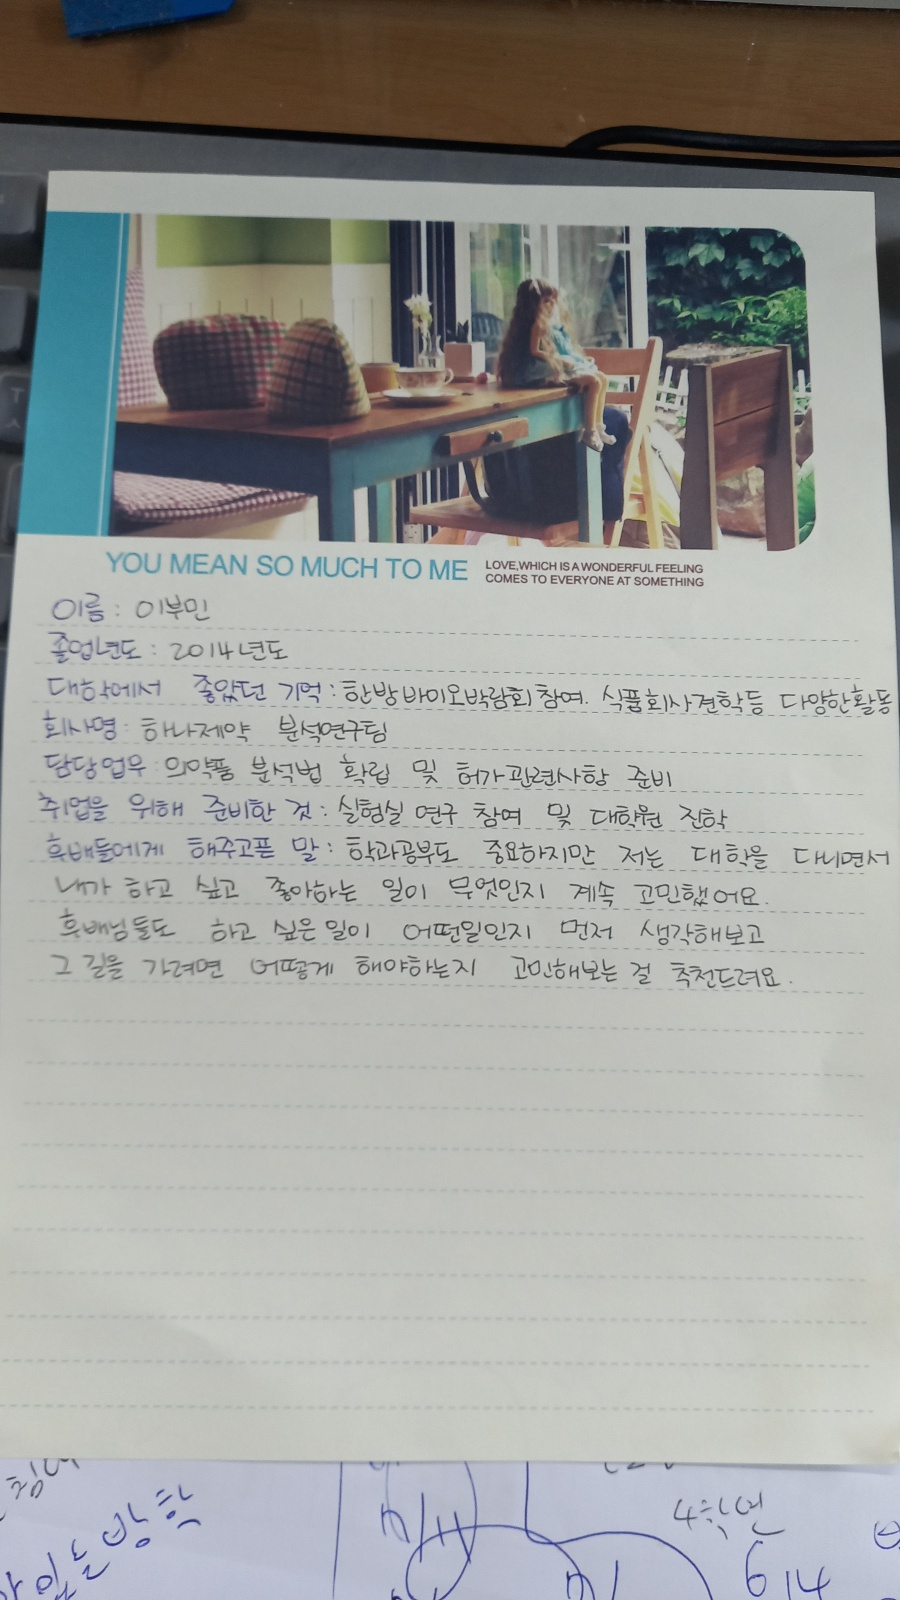 YOU MEAN SO MUCH TO ME
LOVE,WHICH IS A WONDERFUL FEELING
COMES TO EVERYONE AT SOMETHING
이름 : 이부민
졸업년도 : 2014년도
대학에서 좋았던 기억 : 한방바이오박람회 참여. 식품회사견학등 다양한활동
회사명 : 하나제약 분석연구팀
담당업무 : 의약품 분석법 확립 및 허가관련사항 준비
취업을 위해 준비한 것 : 실험실 연구 참여 및 대학원 진학
후배들에게 해주고픈 말 : 학과공부도 중요하지만 저는 대학을 다니면서
내가 하고 싶고 좋아하는 일이 무엇인지 계속 고민했어요.
후배님들도 하고 싶은일이 어떤일인지 먼저 생각해보고
그 길을 가려면 어떻게 해야하는지 고민해보는 걸 추천드려요.
4학년
614